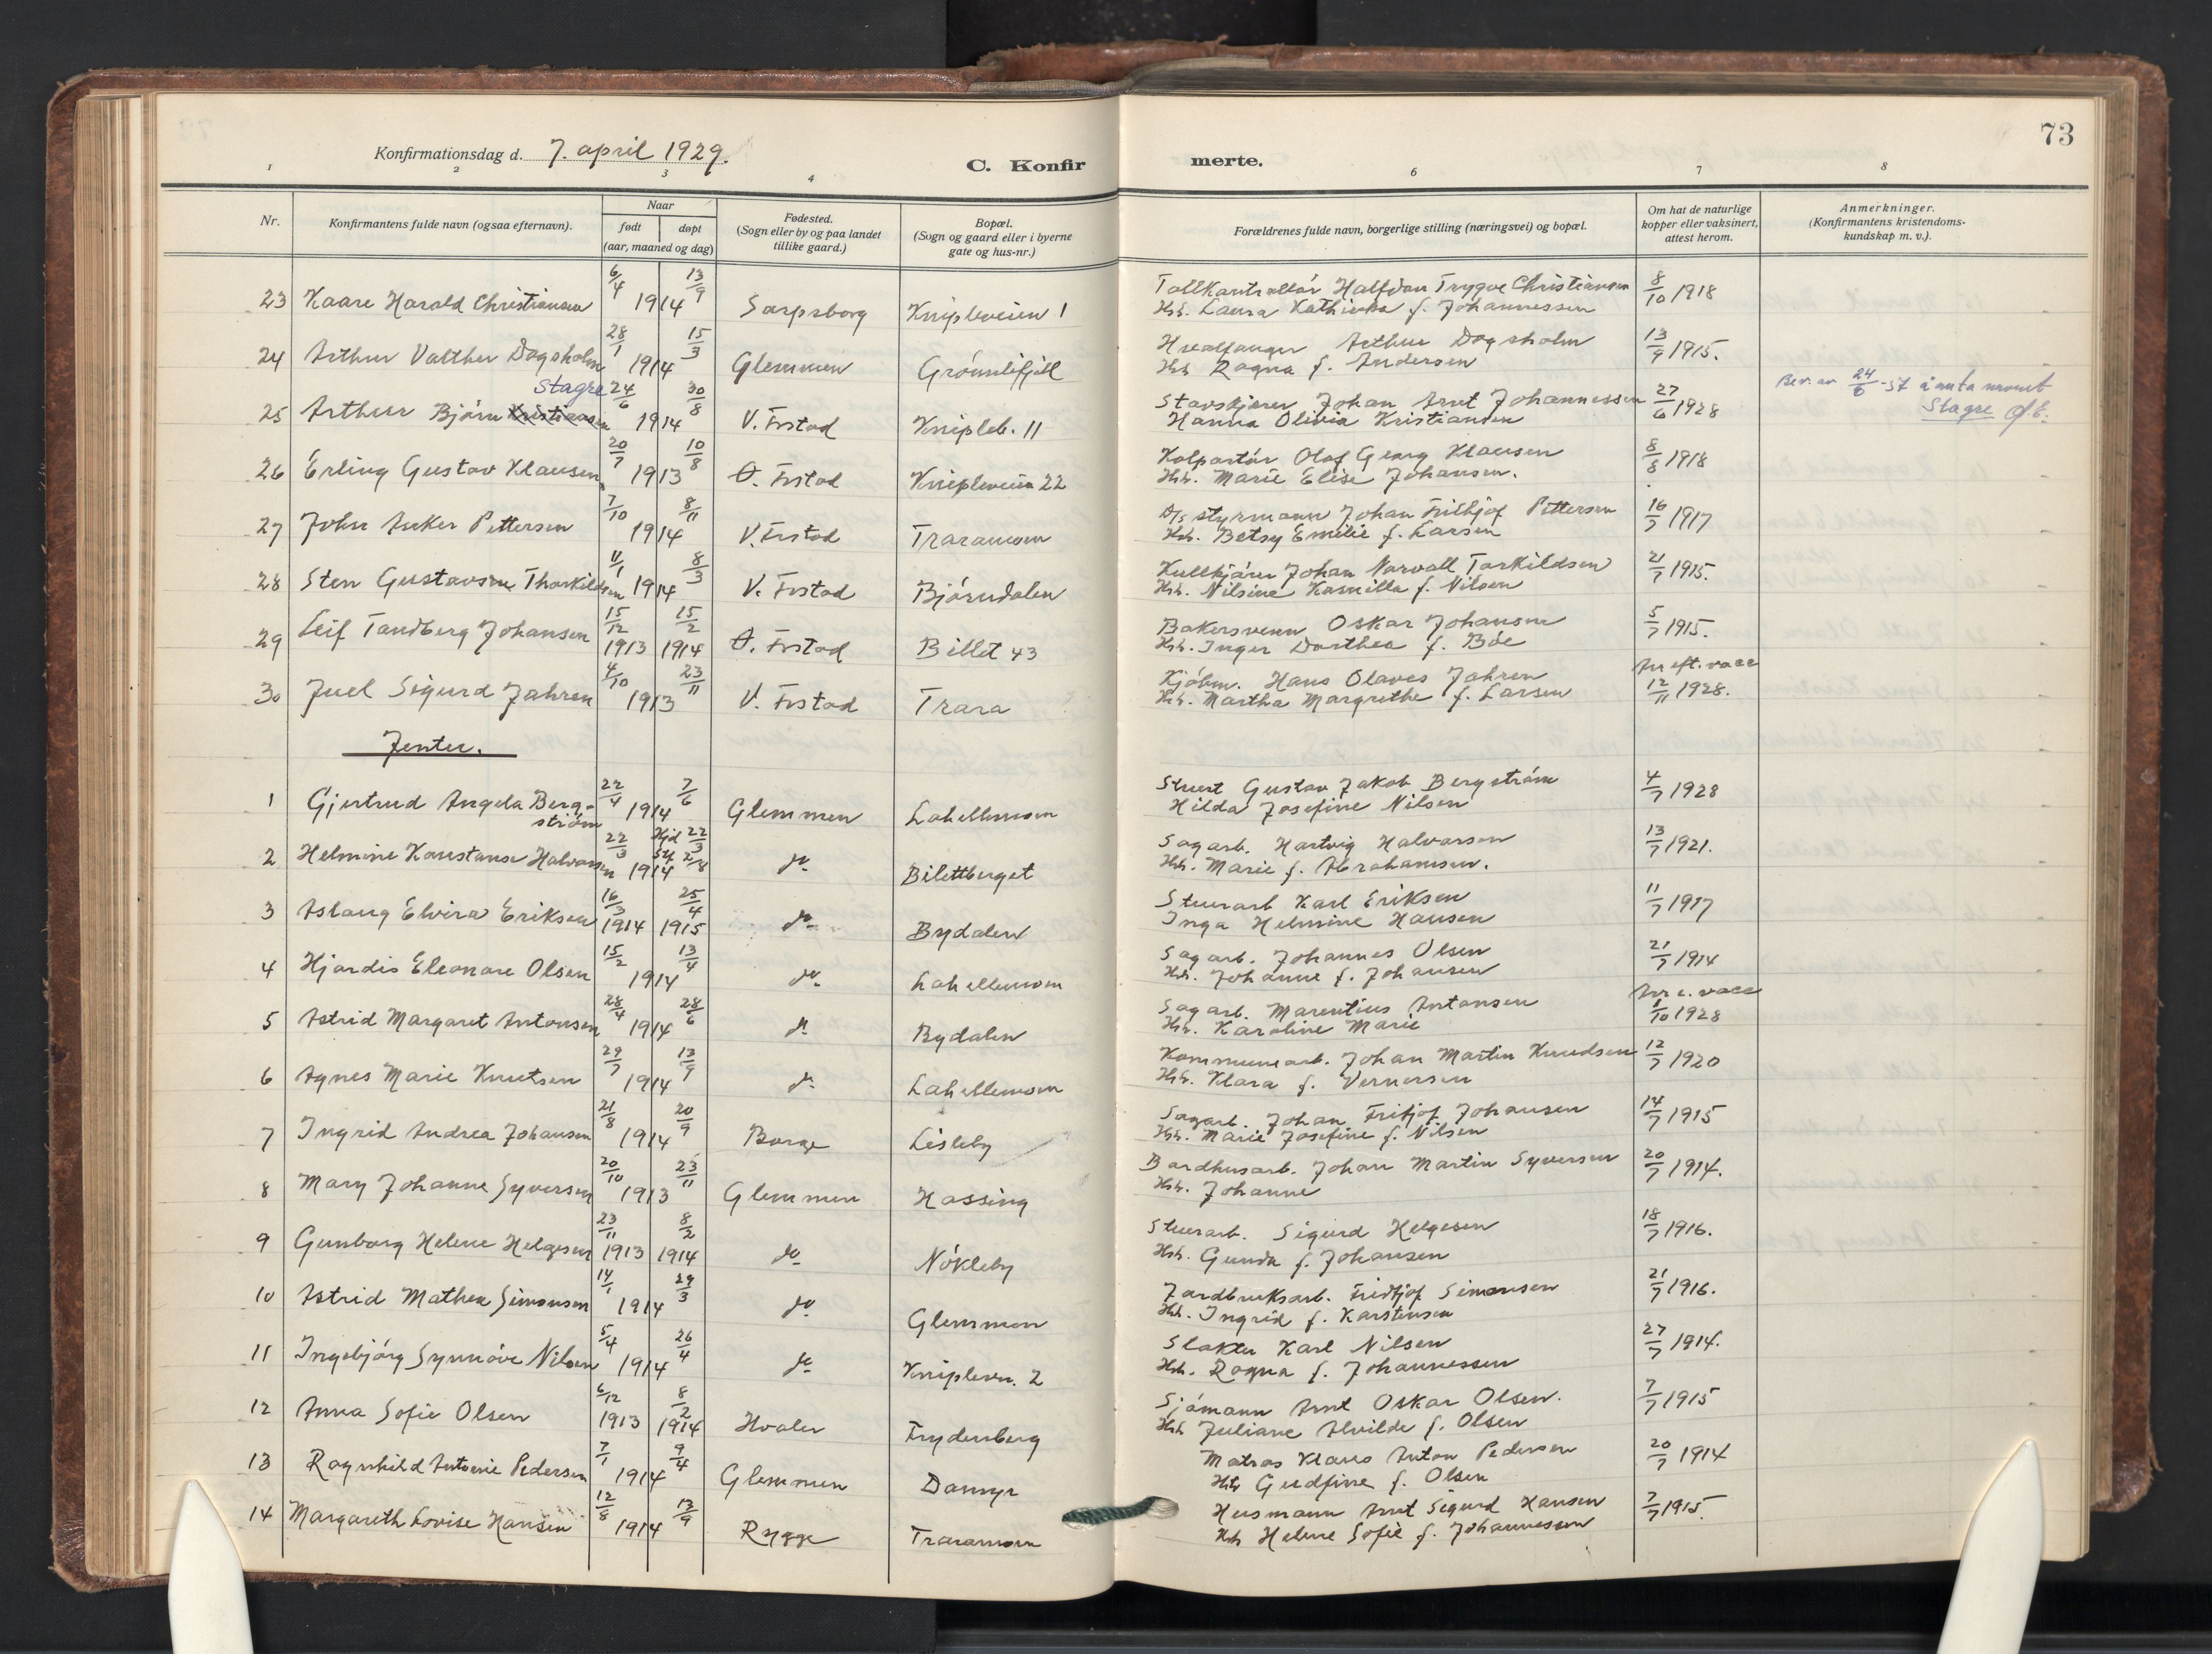 73
Konfirmationsdag d. 7. april 1929.
C. Konfir merte.
1 2 3 4 6 7 8
Nr.
Konfirmantens fulde navn (ogsaa efternavn).
Naar
født døpt
(aar, maaned og dag)
Fødested.
(Sogn eller by og paa landet
tillike gaard.)
Bopæl.
(Sogn og gaard eller i byerne
gate og hus-nr.)
Forældrenes fulde navn, borgerlige stilling (næringsvei) og bopæl.
Om hat de naturlige
kopper eller vaksinert,
attest herom.
Anmerkninger.
(Konfirmantens kristendoms-
kundskap m. v.).
23 Kaare Harald Christiansen 6/4 13/9 1914 Sarpsborg Knipleveien 1 Tollkontrollör Halfdan Trygve Christiansen 8/10 1918
Hst. Laura Kathinka f. Johannessen
24 Arthur Valther Dagsholm 28/1 15/3 1914 Glemmen Grönnlifjell Hvalfanger Arthur Dagsholm 13/9 1915.
Hst Ragna f. Andersen
Stagre
25 Arthur Björn Kristiansen 24/6 30/8 1914 V. Frstad Knipleb. 11 Stavskjærer Johan Arnt Johannessen 27/6 1928 Bev. av 24/6-57 å anta navnet
Hanna Olivia Kristiansen Stagre
26 Erling Gustav Klausen 20/7 10/8 1913 Ø. Frstad Knipleveien 22 Kolportör Olaf Georg Klausen 8/8 1918
Hst. Marie Elise Johansen.
27 John Anker Pettersen 7/10 8/11 1914 V. Frstad Traramoen D/s styrmann Johan Fritjof Pettersen 16/7 1917
Hst. Betsy Emilie f. Larsen
28 Sten Gustavsen Thorkildsen 11/1 8/3 1914 V. Frstad Björndalen Kullkjörer Johan Norvall Torkildsen 21/7 1915.
Hst. Nilsine Kamilla f. Nilsen
29 Leif Tandberg Johansen 15/12 1913 15/2 1914 Ø. Frstad Billet 43 Bakersvenn Oskar Johansen 5/7 1915.
Hst. Inger Dorthea f. Böe
30 Juel Sigurd Jahren 4/10 23/11 1913 V. Frstad Trara Kjöbm. Hans Olaves Jahren Anr eft. vacc 12/11 1928.
Hst. Martha Margrethe f. Larsen
Jenter.
1 Gjertrud Angela Berg-
ström 22/4 7/6 1914 Glemmen Lahellemoen Stuert Gustav Jakob Bergström 4/7 1928
Hilda Josefine Nilsen
2 Helmine Konstanse Halvorsen 22/3 Hjd 22/3 1914 do Bilettberget Sagarb. Hartvig Halvorsen 13/7 1921.
Hst. Marie f. Abrahamsen.
3 Aslaug Elvira Eriksen 16/3 1914 25/4 1915 do Bydalen Stuerarb Karl Eriksen 11/7 1917
Inga Helmine Hansen
4 Hjordis Eleonore Olsen 15/2 13/4 1914 do Lahellemoen Sagarb. Johannes Olsen 21/7 1914
Hst. Johanne f. Johansen
5 Astrid Margaret Antonsen 28/4 28/6 1914 do Bydalen Sagarb. Marentius Antonsen Anr e. vacc 1/10 1928
Hst. Karoline Marie
6 Agnes Marie Knutsen 29/7 13/9 1914 do Lahellemoen Kommunearb. Johan Martin Knudsen 12/7 1920
Hst. Klara f. Vernersen
7 Ingrid Andrea Johansen 21/8 20/9 1914 Borge Lisleby Sagarb. Johan Fritjof Johansen 14/7 1915
Hst. Marie Josefine f. Nilsen
8 Mary Johanne Syversen 20/10 23/11 1913 Glemmen Hassing Bordhusarb. Johan Martin Syversen 20/7 1914.
Hst. Johanne
9 Gunborg Helene Helgesen 23/11 1913 8/2 1914 do Nökleby Stuerarb. Sigurd Helgesen 18/7 1916.
Hst. Gunda f. Johansen
10 Astrid Mathea Simonsen 14/1 29/3 1914 do Glemmen Jordbruksarb. Fridtjof Simonsen 21/7 1916.
Hst. Ingrid f. Karstensen
11 Ingebjörg Synnöve Nilsen 5/4 26/4 1914 do Kniplevn. 2 Slakter Karl Nilsen 27/7 1914.
Hst. Ragna f. Johannessen
12 Anna Sofie Olsen 6/12 1913 8/2 1914 Hvaler Frydenberg Sjömann Arnt Oskar Olsen. 7/7 1915
Hst Juliane Alvilde f. Olsen
13 Ragnhild Antonie Pedersen 7/1 9/4 1914 Glemmen Dammyr Matros Klaus Anton Pedersen 20/7 1914
Hst Gudfine f. Olsen
14 Margareth Lovise Hansen 12/8 13/9 1914 Rygge Traramoen Husmann Arnt Sigurd Hansen 7/7 1915.
Hst Helene Sofie f. Johannessen